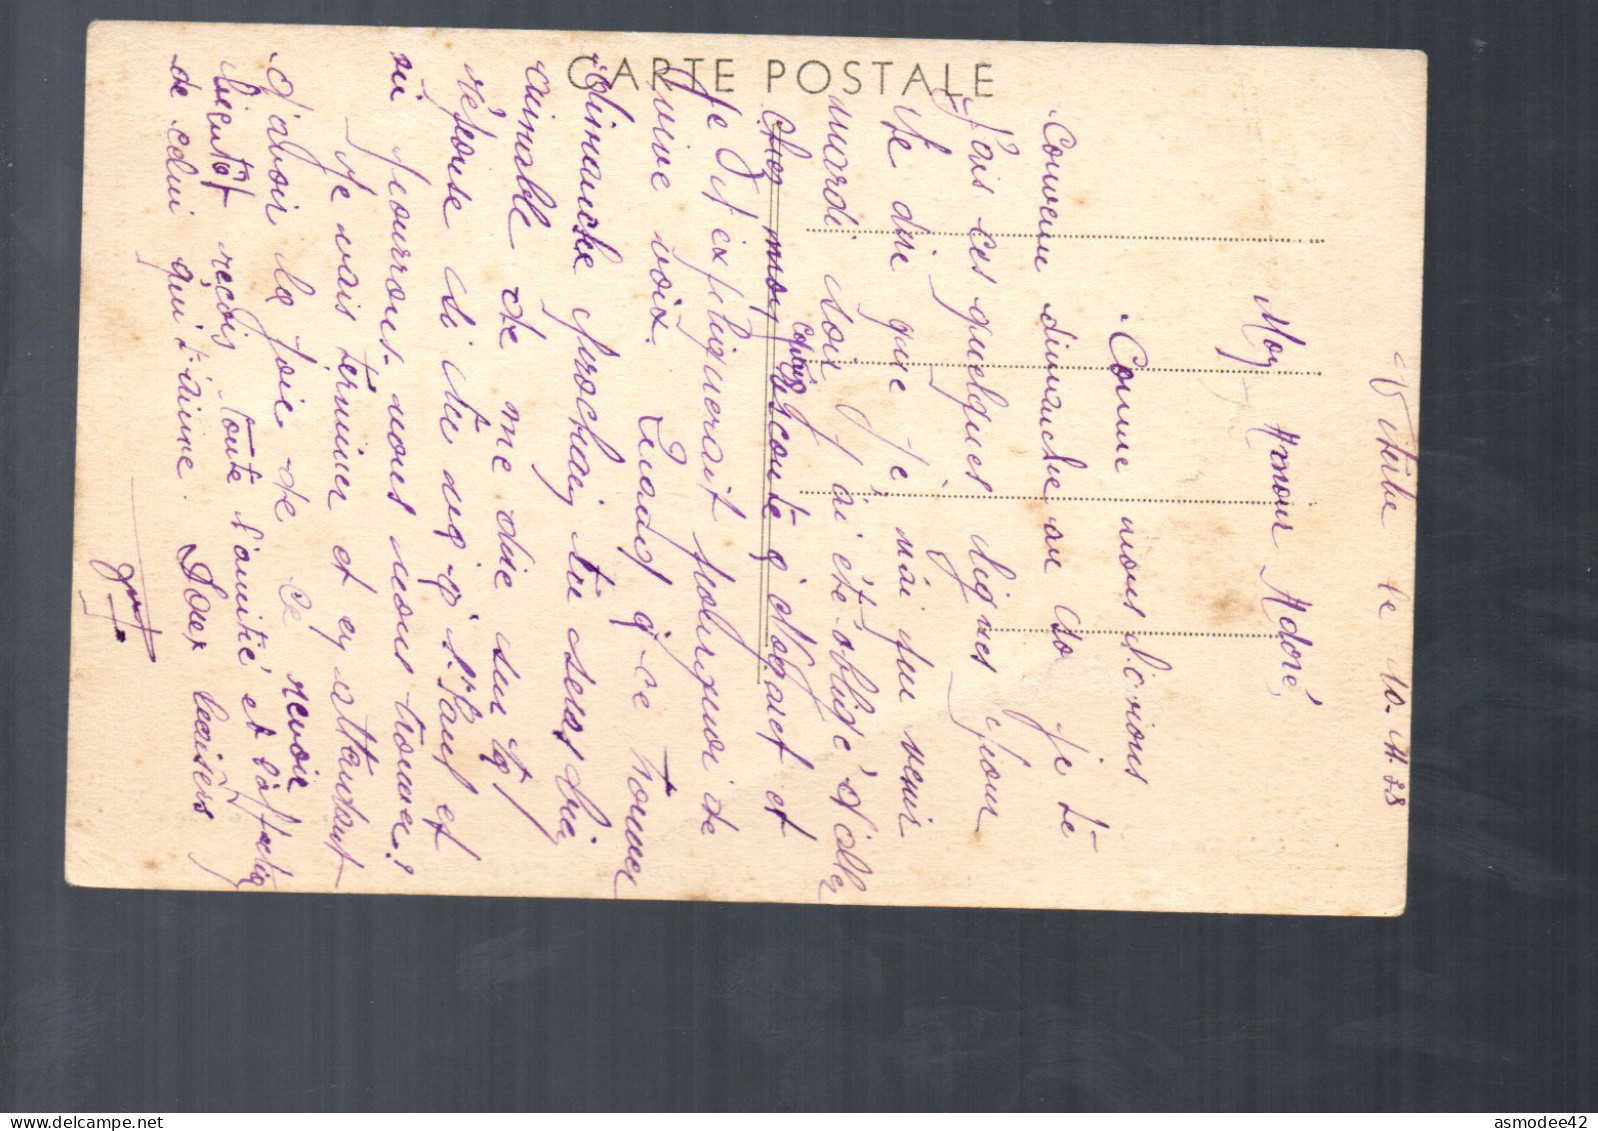 CARTE POSTALE
le 10-11-38
Mon Amour Adoré
Comme nous l'avions
Convenu dimanche au so je te
fais ces quelques lignes pour
te dire que je n'ai pu venir
mardi soir j'ai été obligé d'aller
chez mon
et
je t'expliquerait pourquoi de
vive voix. Quand à ce
dimanche prochain tu seras bien
aimable de me dire sur ta
réponse si tu et
si pourrons-nous nous trouver?
Je vais terminer et en attendant
d'avoir la joie de te revoir
bientôt reçois toute l'amitié et l'affection
de celui qui t'aime. Doux baisers
asmodee42
www.delcampe.net